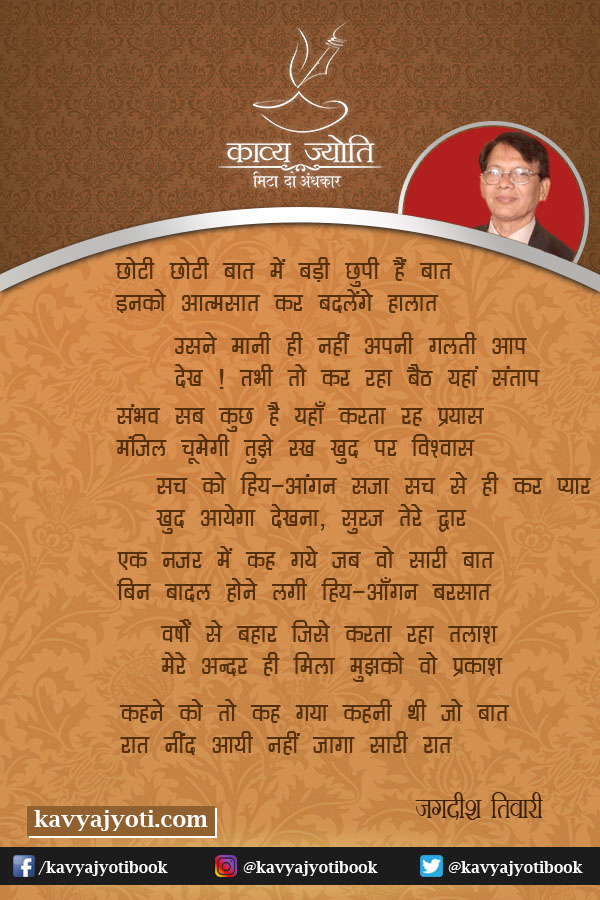 काव्य ज्योति
मिटा दो अंधकार
छोटी छोटी बात में बड़ी छुपी हैं बात
इनको आत्मसात कर बदलेंगे हालात
उसने मानी ही नहीं अपनी गलती आप
देख ! तभी तो कर रहा बैठ यहां संताप
संभव सब कुछ है यहाँ करता रह प्रयास
मंजिल चूमेगी तुझे रख खुद पर विश्वास
सच को हिय-आंगन सजा सच से ही कर प्यार
खुद आयेगा देखना, सुरज तेरे द्वार
एक नजर में कह गये जब वो सारी बात
बिन बादल होने लगी हिय-आँगन बरसात
वर्षों से बहार जिसे करता रहा तलाश
मेरे अन्दर ही मिला मुझको वो प्रकाश
कहने को तो कह गया कहनी थी जो बात
रात नींद आयी नहीं जागा सारी रात
जगदीश तिवारी
kavyajyoti.com
/kavyajyotibook @kavyajyotibook @kavyajyotibook